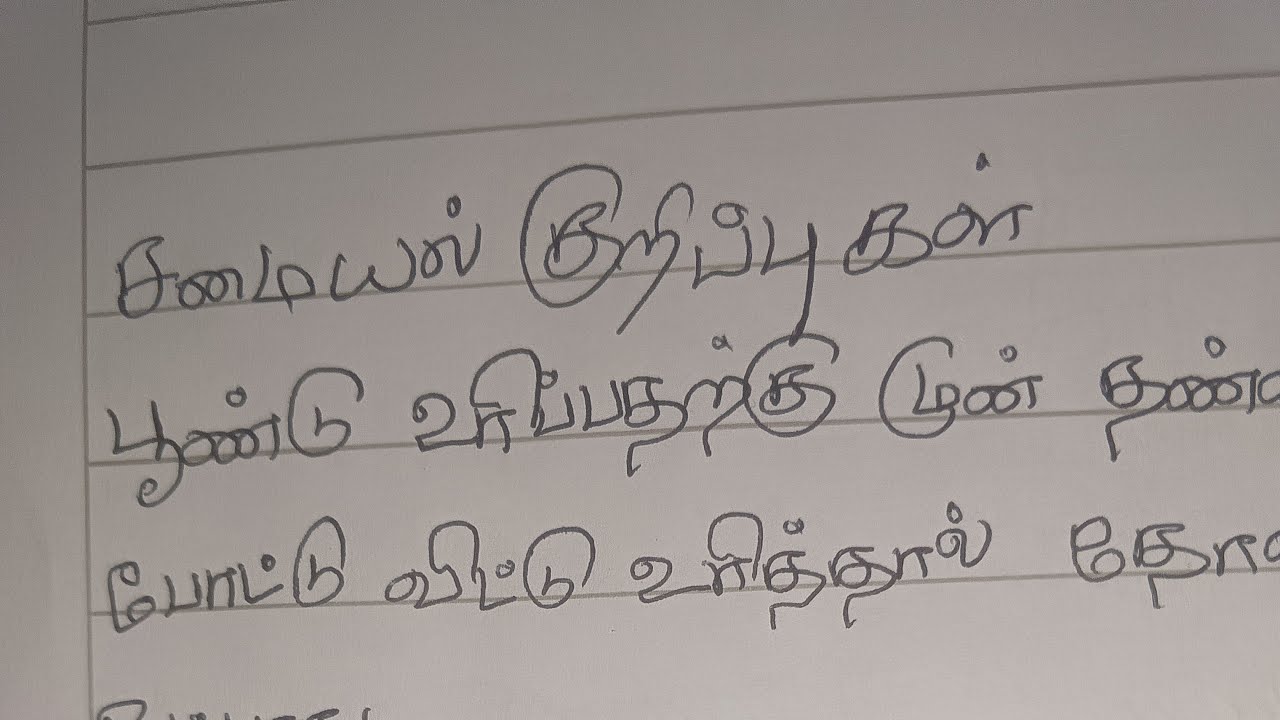 சமையல் குறிப்புகள்
பூண்டு உரிப்பதற்கு முன் தண்
போட்டு விட்டு உரித்தால் தோ